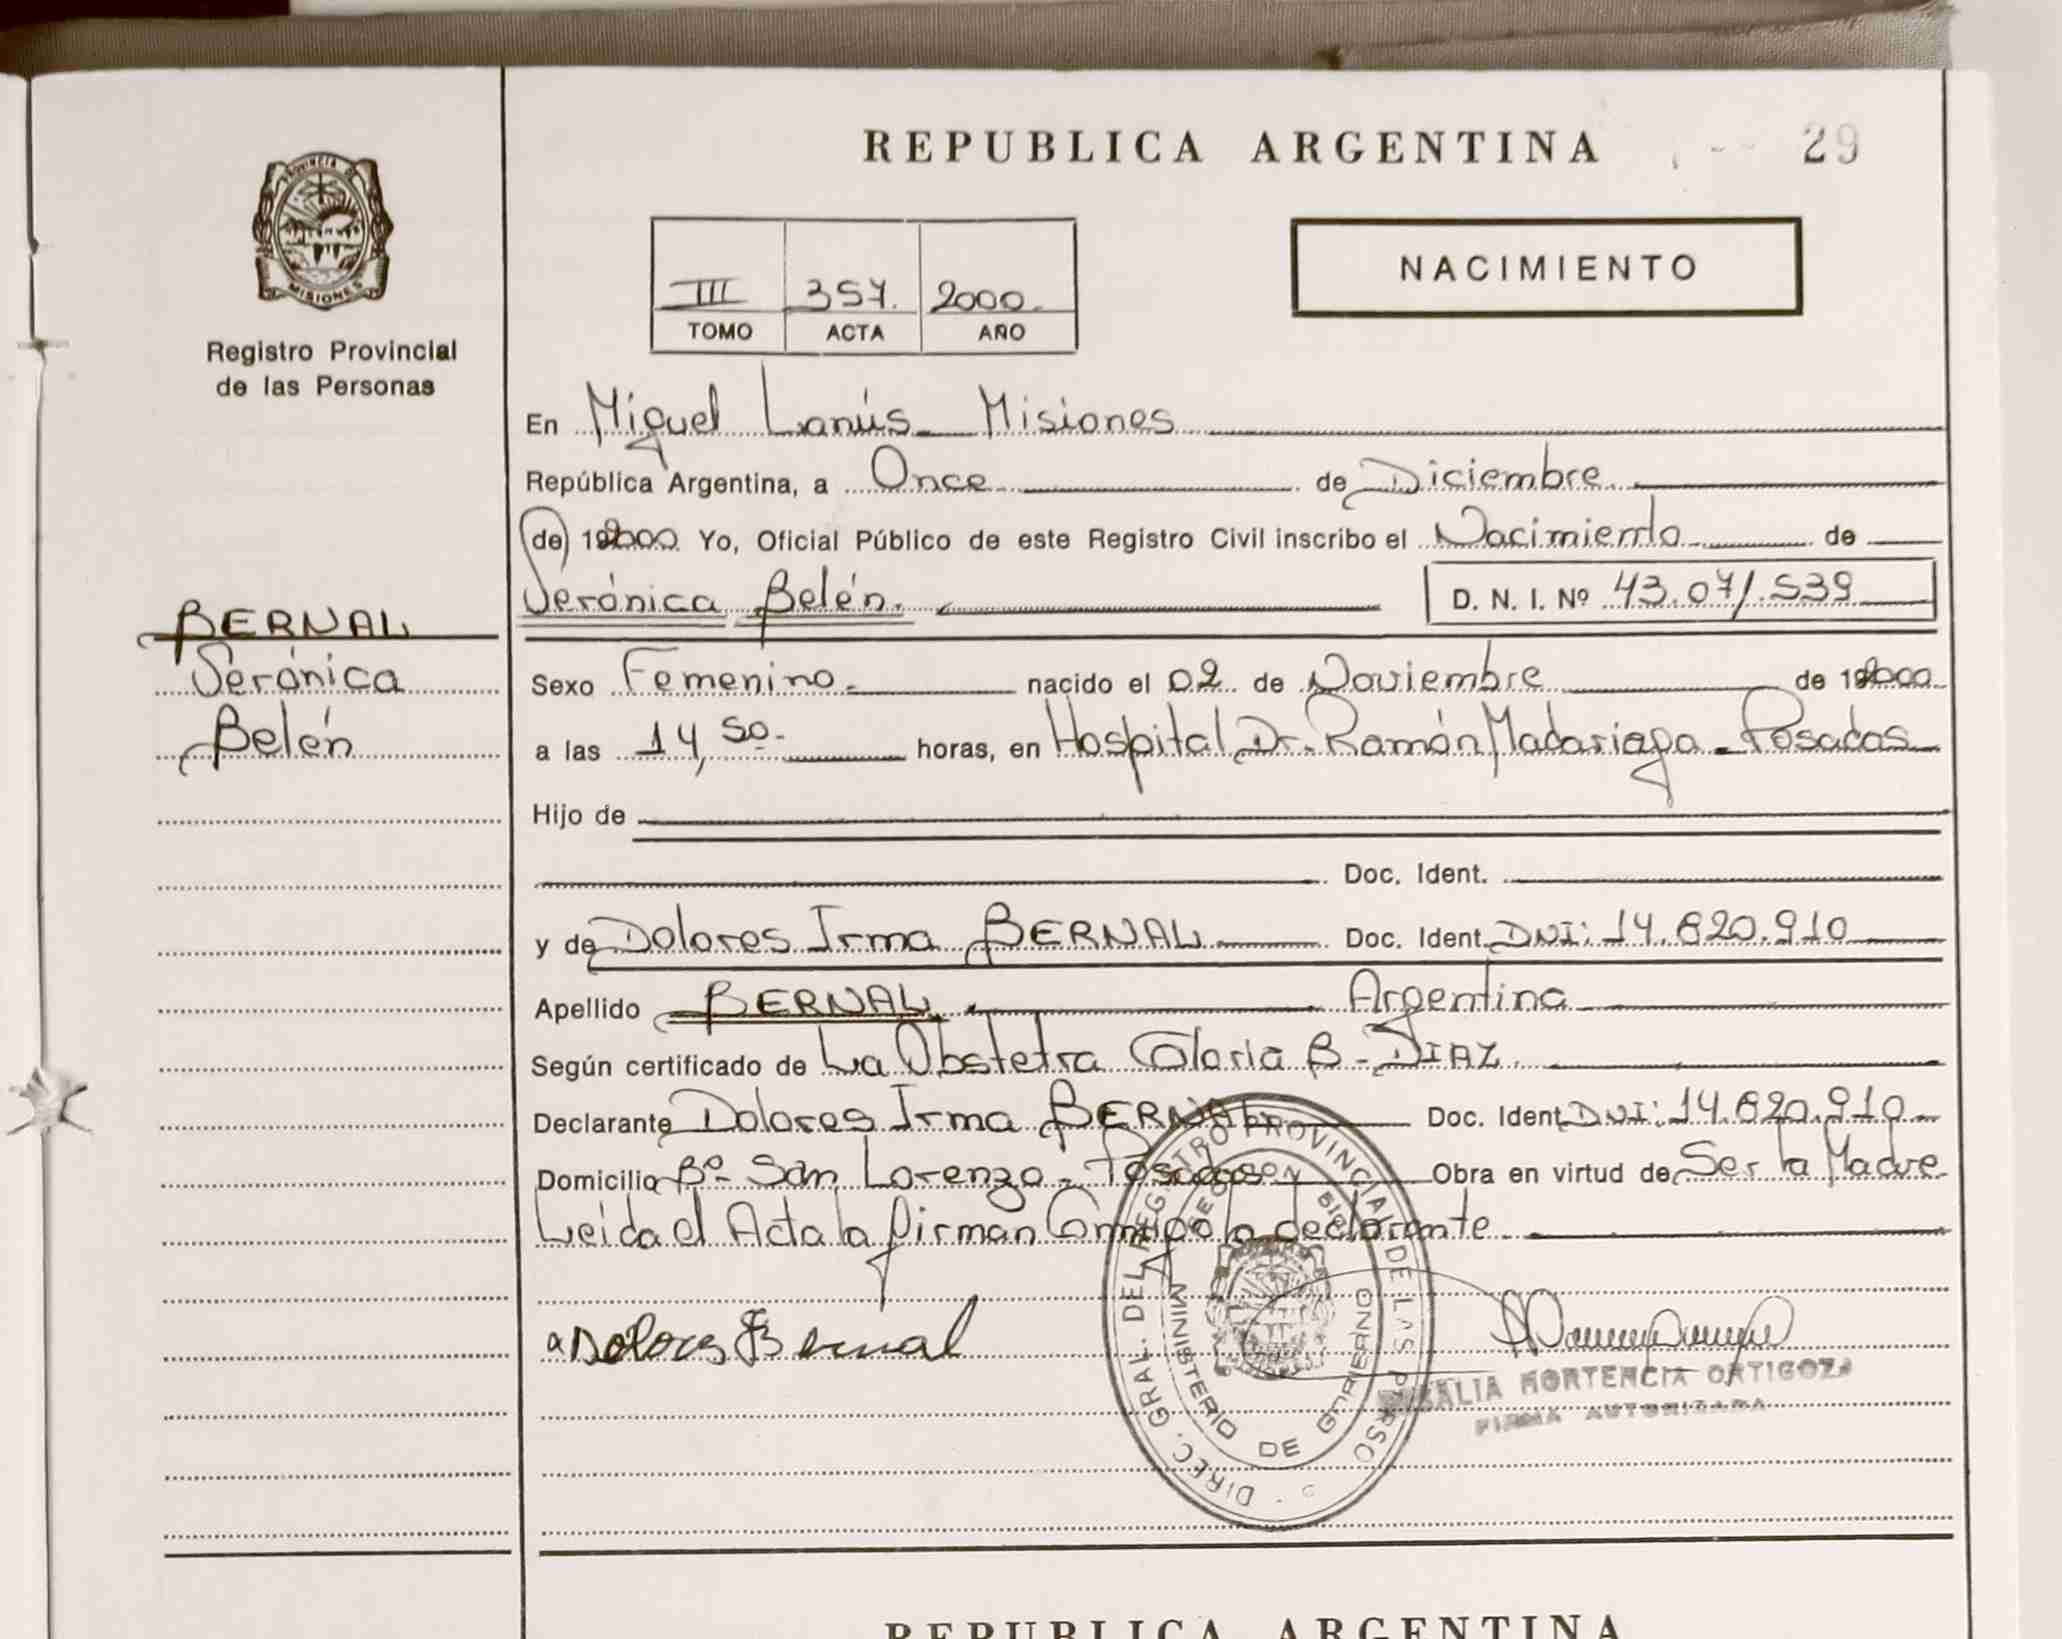 REPUBLICA ARGENTINA
29
PROVINCIA DE
MISIONES
Registro Provincial
de las Personas
III 357. 2000.
TOMO ACTA AÑO
NACIMIENTO
En Miguel Lanús Misiones
República Argentina, a Once de Diciembre
de 2000 Yo, Oficial Público de este Registro Civil inscribo el Nacimiento de
Verónica Belén. D. N. I. Nº 43.071.539
BERNAL
Verónica
Belén
Sexo Femenino nacido el 02 de Noviembre de 2000
a las 14,50 horas, en Hospital Dr. Ramón Madariaga - Posadas
Hijo de
Doc. Ident.
y de Dolores Irma BERNAL Doc. Ident. DNI: 14.820.910
Apellido BERNAL Argentina
Según certificado de La Obstetra Gloria B. DIAZ
Declarante Dolores Irma BERNAL Doc. Ident. DNI: 14.820.910
Domicilio Bº San Lorenzo - Posadas Obra en virtud de Ser la Madre
Leida el Acta la firman Conmigo la declarante
Dolores Bernal
DIREC. GRAL. DEL REGISTRO PROVINCIAL DE LAS PERSO
MINISTERIO DE GOBIERNO
HORTENCIA ORTIGOZA
FIRMA AUTORIZADA
REPUBLICA ARGENTINA